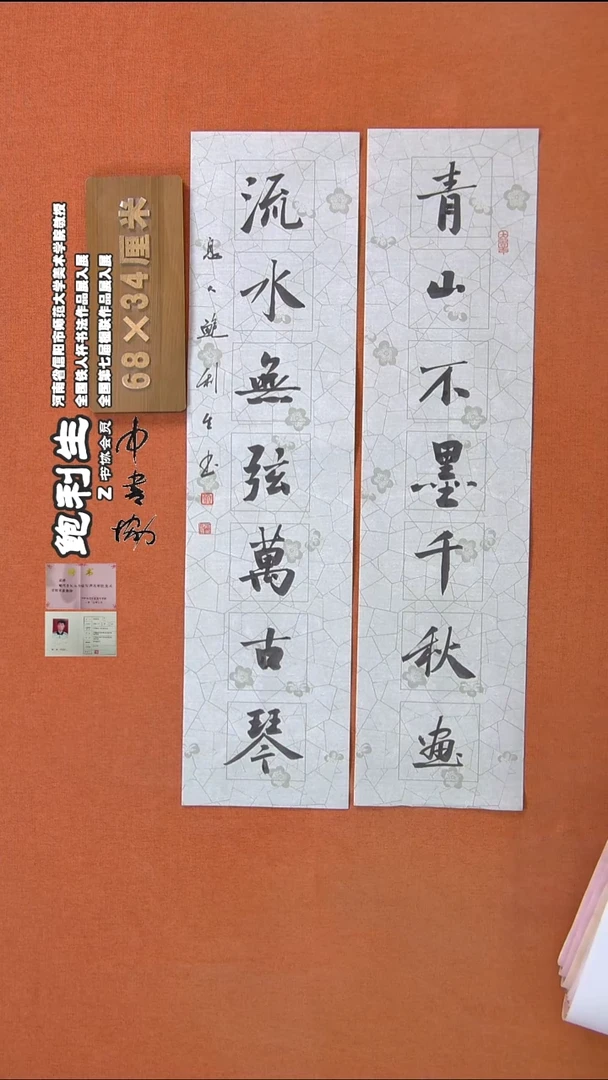 青山不墨千秋画
流水無弦萬古琴
息人鲍利生书
68×34厘米
河南省信阳市师范大学美术学院教授
全国铁人杯书法作品展入展
全国第七届楹联作品展入展
鲍利生
Z书协会员
中书协